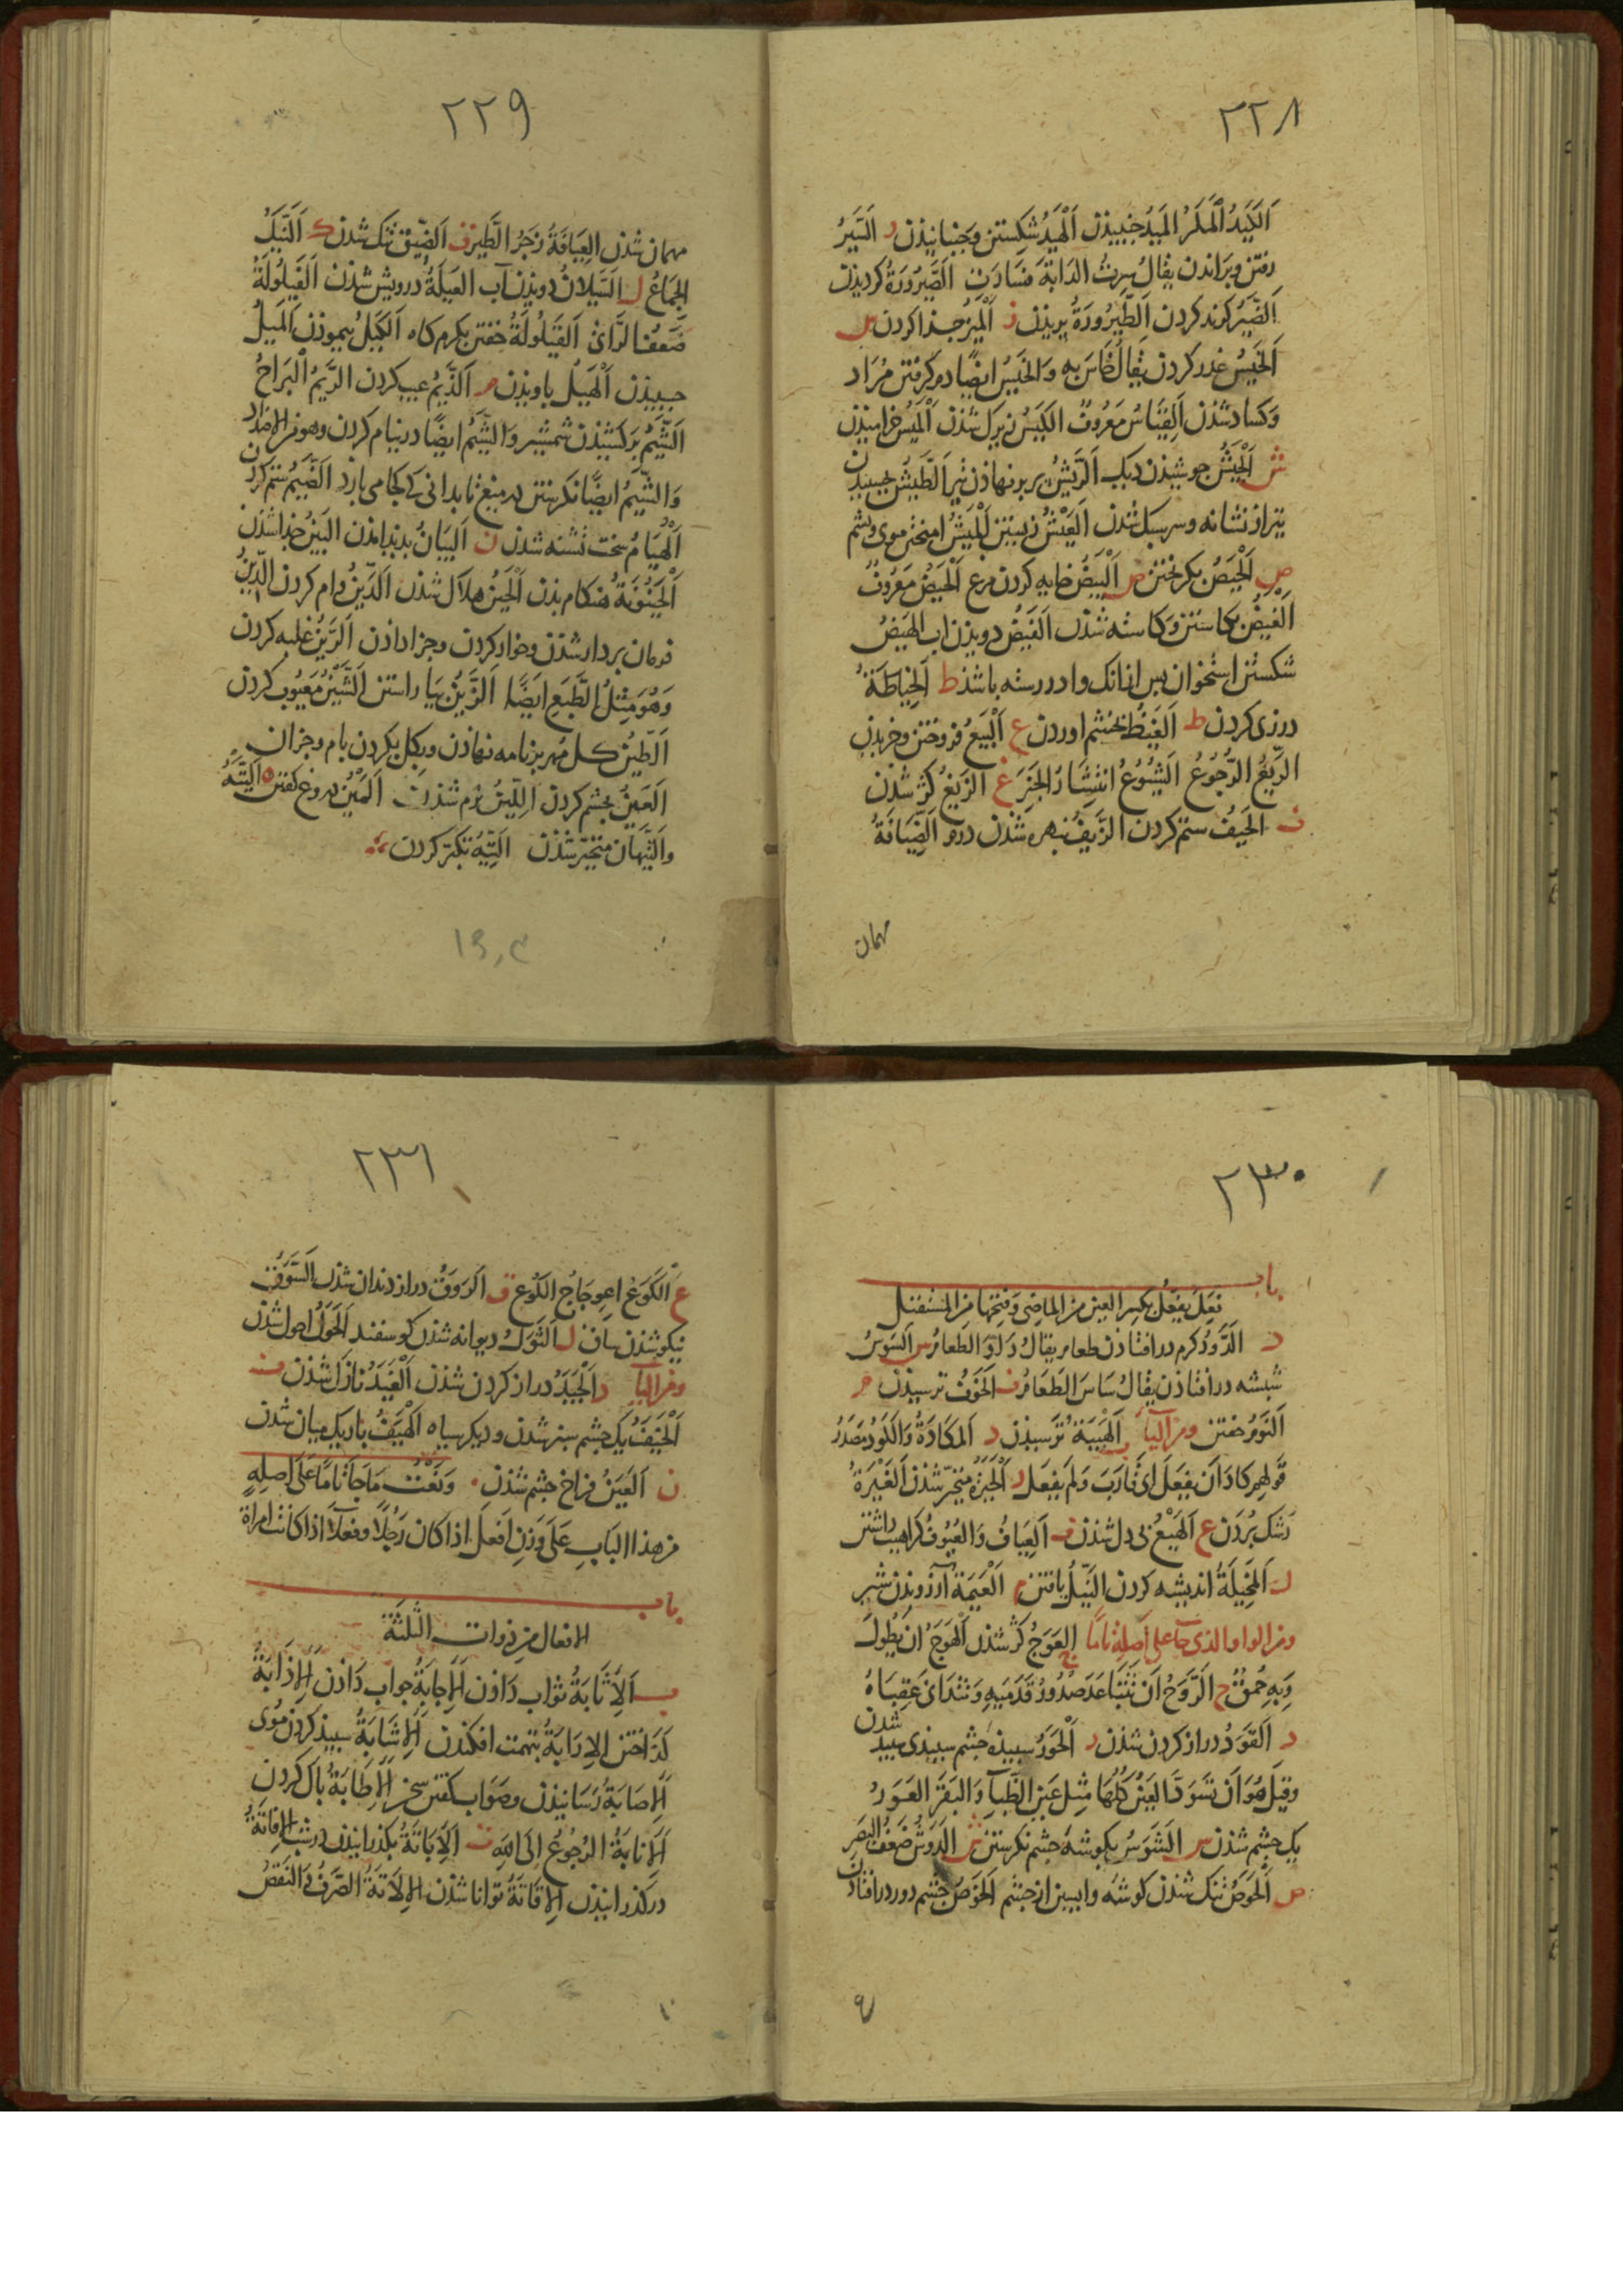 ٢٢٨
اَلْکَیْدُ اَلْمَکْرُ اَلْمَیْدُ جنبیذن اَلْهَیْدُ شکستن و بجنبانیذن ر السَّیْرُ
رفتن و براندن یقال سِرْتُ الدابَّةَ فَسَارَتْ الصَّیْرُورَةُ کردیذن
اَلضَّیْرُ کزند کردن اَلطَّیْرُورَةُ پریذن ز اَلْمَیْزُ جذا کردن س
اَلْخَیْسُ غدر کردن یقال خَاسَ بِهِ وَالْخَیْسُ ایضًا دم کرفتن مُرَاد
وکساد شذن اَلْقِیَاسُ مَعْرُوفٌ الکَیْسُ زیرک شذن اَلْمَیْسُ خرامیذن
ش اَلْجَیْشُ جوشیذن دیک اَلرَّیْشُ پر برنهاذن تیر اَلطَّیْشُ بجسبیدن
تیر از نشانه و سرسبک شذن اَلْعَیْشُ زیستن اَلْمَیْشُ امیختن موی و پشم
ص اَلْحَیْصُ بکریختن ض اَلْبَیْضُ خایه کردن مرغ اَلْحَیْضُ مَعْرُوفٌ
اَلْغَیْضُ بکاستن و کاسته شذن اَلْفَیْضُ دویذن اب الهَیْضُ
شکستن استخوان پس ازانک وادررسته باشذ ط اَلْخِیَاطَةُ
درزی کردن ظ اَلْغَیْظُ بخشم اوردن ع اَلْبَیْعُ فروختن و خریدن
الرَّیْعُ الرُّجُوعُ الشُّیُوعُ اِنْتِشَارُ الْخَبَرِ غ الزَّیْغُ کژ شدن
ف الحَیْفُ ستم کردن الزَّیْفُ نبهره شذن درم الضِّیَافَةُ
مهمان
٢٢٩
مهمان شذن العِیَافَةُ زَجْرُ الطَّیْرِ ق اَلضِّیقُ تنک شدن ک اَلنَّیْکُ
الجِمَاعُ ل السَّیَلَانُ دویذن آب العَیْلَةُ درویش شذن اَلْفَیْلُولَةُ
ضَعْفُ الرَّای اَلقَیْلُولَةُ خفتن بکرم کاه اَلْکَیْلُ پیموذن اَلْمَیْلُ
جبیذن اَلْهَیْلُ باویذن م اَلذَّیْمُ عیب کردن الرَّیْمُ اَلْبَرَاحُ
اَلشَّیْمُ برکشیذن شمشیر وَالشَّیْمُ ایضًا درنیام کردن وهو من الاضداد
وَالشَّیْمُ ایضًا نکرستن در میغ تا بدانی که کجا می بارد اَلضَّیْمُ ستم کردن
اَلْهُیَامُ سخت تشنه شدن ن اَلْبَیَانُ بدید امذن البَیْنُ جذا شذن
اَلْحَیْنُونَةُ هنکام بذن اَلْحَیْنُ هلاک شذن اَلدَّیْنُ وام کردن الدِّینُ
فرمان بردار شذن و خوار کردن و جزا داذن اَلرَّیْنُ غلبه کردن
وَهُوَ مِثْلُ الطَّبْعِ ایضًا اَلزَّیْنُ بیاراستن اَلشَّیْنُ معیوب کردن
اَلطَّیْنُ کل مهر بر نامه نهاذن و بکل بکردن بام و جزان
العَیْنُ بچشم کردن اَللِّینُ نرم شذن اَلْمَیْنُ دروغ کفتن ه اَلتَّیْهُ
والتَّیَهَانُ متحیّر شذن التِّیْهُ تکبّر کردن
٢٣٠
باب
فَعِلَ یَفْعَلُ بکسر العین من الماضی وفتحها من المستقبل
د الدَّوْدُ کرم درافتاذن طعام یقالُ دَادَ الطعامُ س السَوْسُ
شبشه درافتاذن یقالُ سَاسَ الطَعَامُ ف الخَوْفُ ترسیذن م
اَلنَّوْمُ خفتن ومن الیآ ب اَلْهَیْبَةُ ترسیذن د اَلمَکَادَةُ وَالکَوْدُ مَصْدَرُ
قَولهم کادَ اَن یَفْعَلَ ای قَارَبَ وَلَم یَفْعَل ر اَلْحَیْرَةُ متحیّر شذن اَلغَیْرَةُ
رشک بُردن ع اَلْهَیْعُ بی دل شذن ف اَلْعِیَافُ وَالعُیُوفُ کراهیت داشتن
ل المَخِیلَةُ اندیشه کردن النَّیْلُ یافتن م اَلْعَیْمَةُ آرزویذن شیر
ومن الواو والذی جآ علی اصله تامًا ج العَوَجُ کژ شذن اَلْهَوَجُ اَنْ یَطُولَ
وَبِهِ حُمْقٌ ح الرَّوَحُ اَنْ تَتَبَاعَدَ صُدُورُ قَدَمَیْهِ وَتَتَدَانی عَقِبَاهُ
د اَلقَوَدُ دراز کردن شذن ر اَلْحَوَرُ سپیذه چشم سپیذی سپید شدن
وقیل هُوَ اَنْ تَسْوَدَّ العَیْنُ کُلُّهَا مِثْل عَین الظَّبَآءِ وَالبَقَرِ العَوَرُ
یک چشم شذن س الشَّوَسُ بکوشهٔ چشم نکرستن ش الدَّوَشُ ضَعْفُ البَصَرِ
ص اَلْحَوَصُ تنک شذن کوشه وابسین از چشم اَلخَوَصُ چشم دور درافتاذن
٢٣١
ع اَلکَوَعُ اعوِجَاجُ الکُوعِ ق اَلرَّوَقُ دراز دندان شذن السَّوَقُ
نیکو شذن ساق ل اَلثَّوَلُ دیوانه شذن کوسفند اَلْحَوَلُ احول شذن
ومن الیآ د اَلْجَیَدُ دراز کردن شذن اَلْغَیَدُ نازان شذن ف
اَلْخَیَفُ یک چشم سبز شذن و دیکر سیاه اَلْهَیَفُ باریک میان شذن
ن اَلعَیَنُ فراخ چشم شذن وَنَعْتُ مَا جَآءَ تَامًّا عَلَی اصلِهِ
من هذا البَابِ عَلَی وَزنِ اَفْعَل اذا کان رَجُلًا وفعلَآء اذا کانت امراةً
باب
الافعال من ذوات الثلثة
ب اَلْاِثَابَةُ ثواب داذن اَلْاِجَابَةُ جواب داذن اَلْاِذَابَةُ
کذاختن الاِرَابَةُ بتهمت افکندن اَلْاِشَابَةُ سپیذ کردن موی
اَلْاِصَابَةُ رسانیذن و صَواب کفتن سخن اَلْاِطَابَةُ پاک کردن
اَلْاِنَابَةُ الرُّجُوعُ اِلَی اللهِ ت اَلْاِبَاتَةُ بکذرانیذن در شب الاِفَاتَةُ
درکذرانیذن اَلْاِقَاتَةُ توانا شذن اَلْاِلَاتَةُ الصَّرْفُ وَالنَّقْصُ